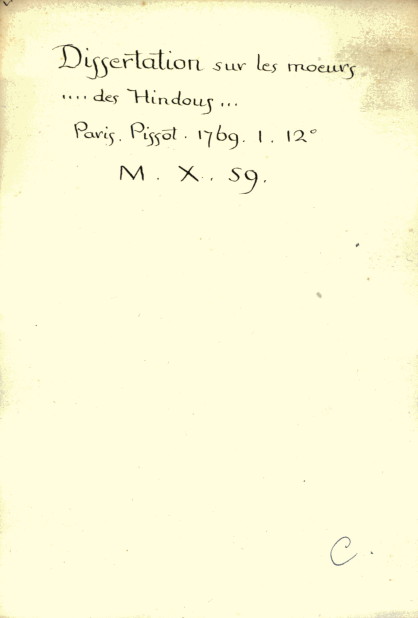 Dissertation sur les moeurs
.... des Hindous ...
Paris. Pissot. 1769. 1. 12°
M. X. 59.
C.